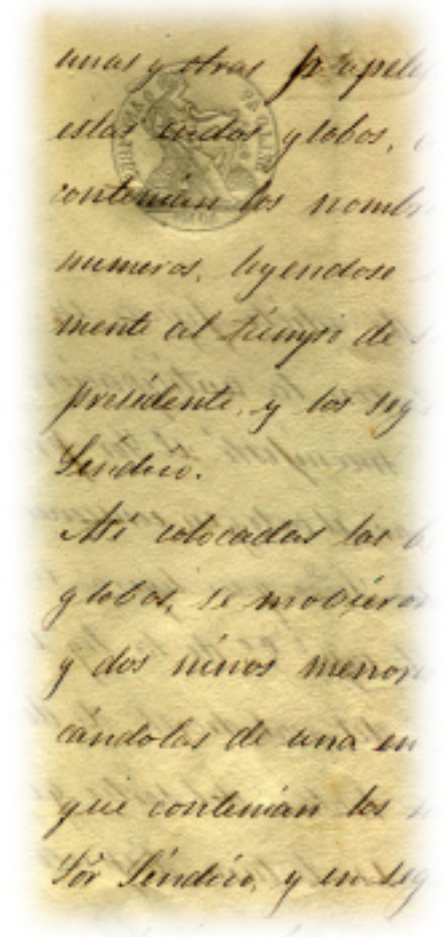 unas y otras papelet
estas en dos globos,
contenian los nombr
numeros, leyendose
mente al tiempo de s
presidente, y los seg
Sindico.
Asi colocadas las b
globos, se movieron
y dos niños menore
cándolas de una en
que contenian los n
Sõr Sindico, y en seg